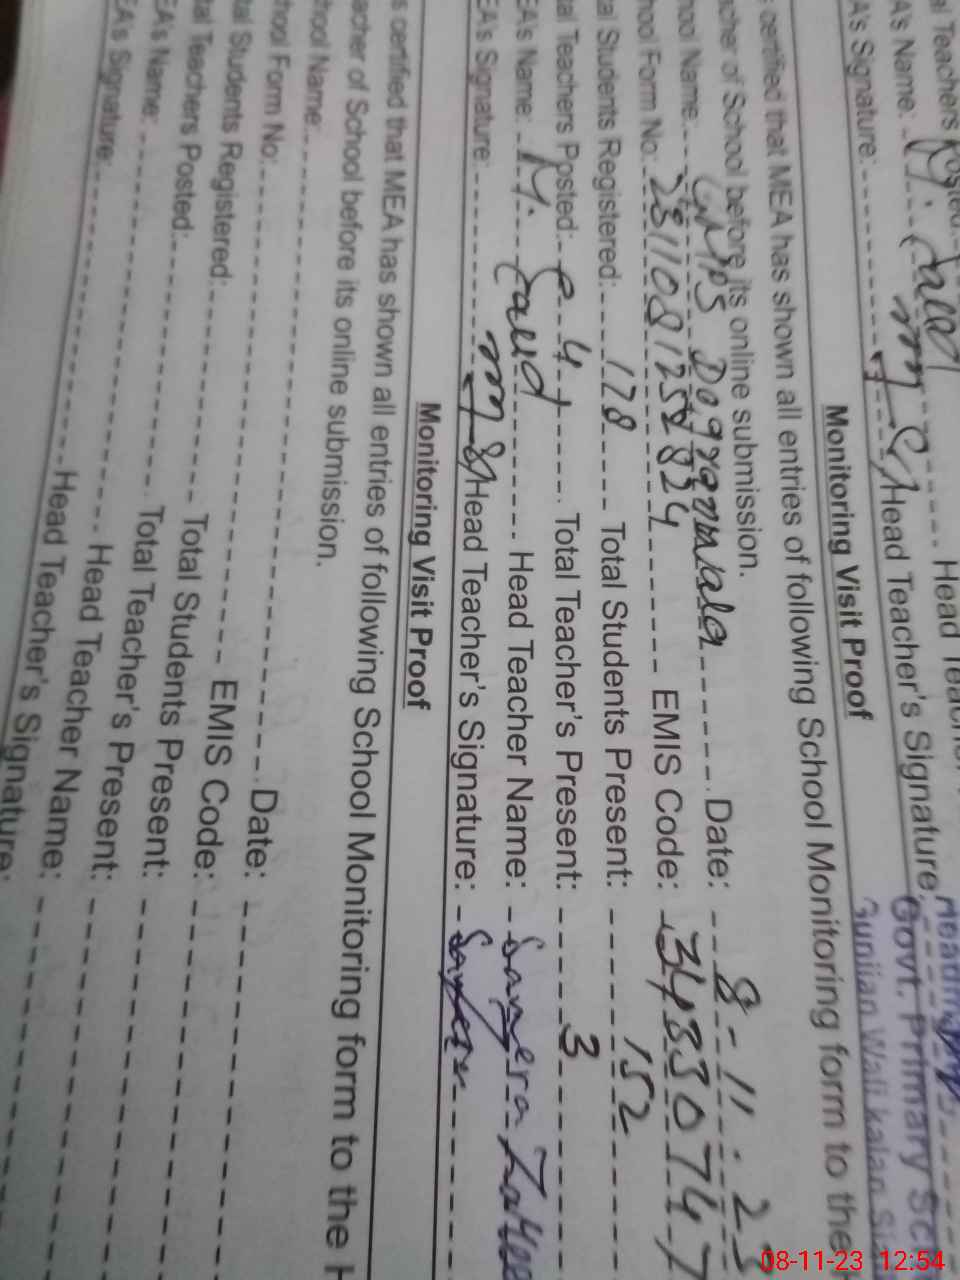 al Teachers Posted:
A's Name: M. Saud Head Teacher
A's Signature: Head Teacher's Signature:
Govt. Primary Sch
Monitoring Visit Proof
s certified that MEA has shown all entries of following School Monitoring form to the
acher of School before its online submission.
hool Name: GMPS Dogranwala Date: 8-11-23
hool Form No: 2311081258824 EMIS Code: 34330747
tal Students Registered: 178 Total Students Present: 152
tal Teachers Posted: 4 Total Teacher's Present: 3
EA's Name: M. Saud Head Teacher Name:
EA's Signature: Head Teacher's Signature:
Monitoring Visit Proof
s certified that MEA has shown all entries of following School Monitoring form to the H
acher of School before its online submission.
hool Name: Date:
hool Form No: EMIS Code:
tal Students Registered: Total Students Present:
tal Teachers Posted: Total Teacher's Present:
EA's Name: Head Teacher Name:
EA's Signature: Head Teacher's Signature:
08-11-23 12:54